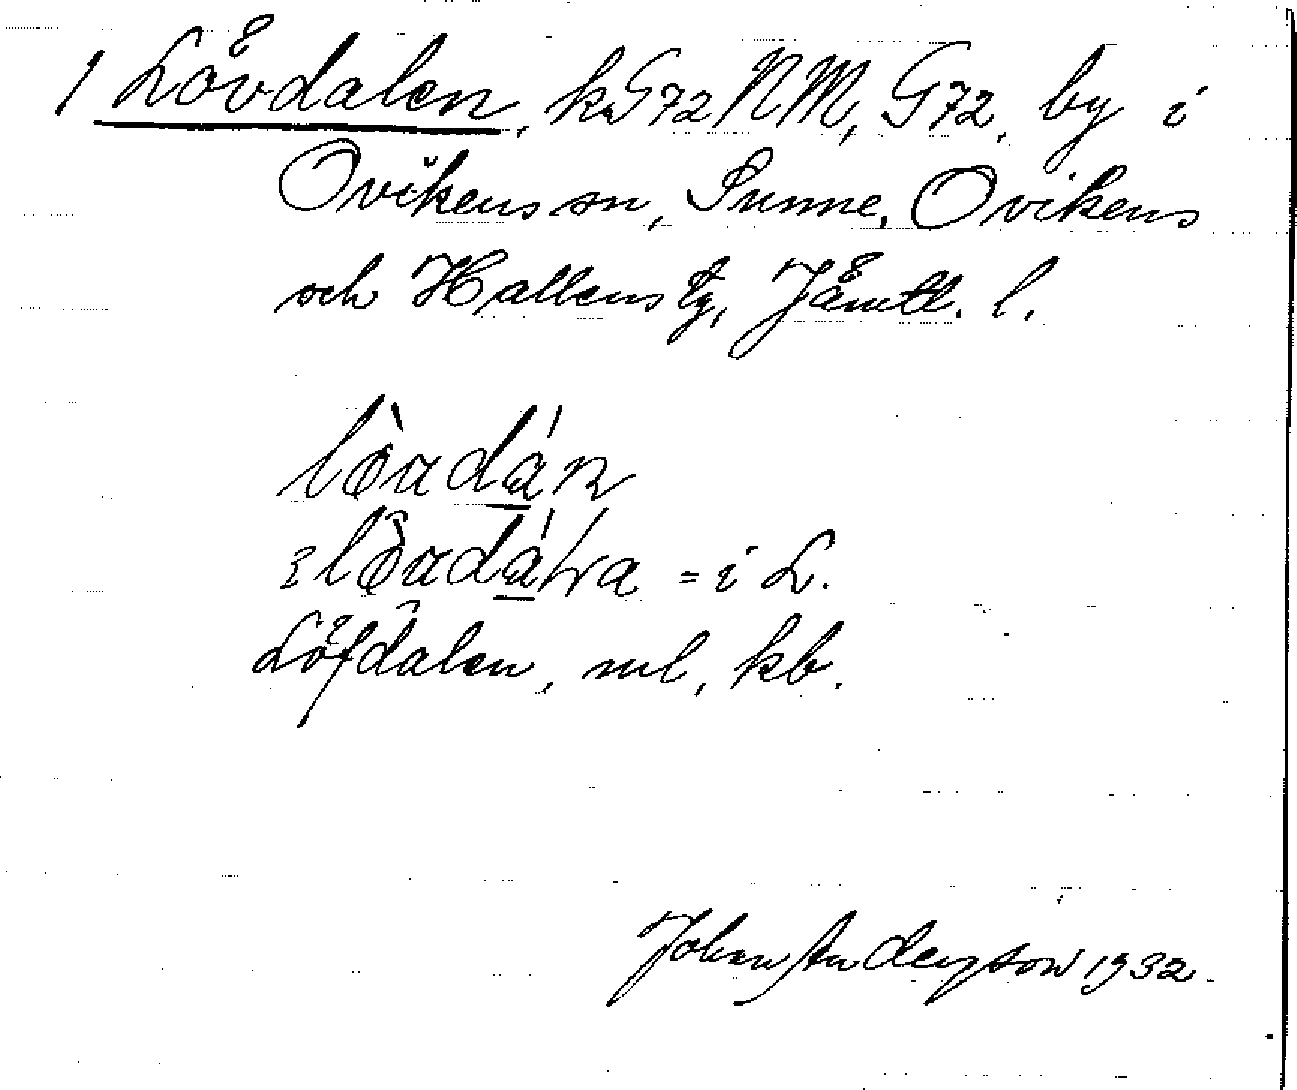 1 Lövdalen, ks G72 NM, G72, by i
Ovikens sn, Sunne, Ovikens
och Hallens tg, Jämtl. l.
= i L.
Löfdalen, ml, kb.
Johan Anderson 1932.